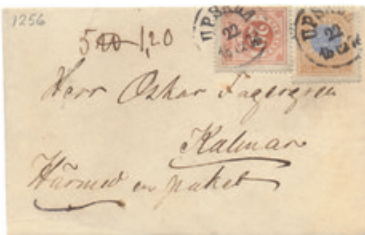 1256
500 1,20
UPSALA
22
UPSALA
22
Herr Oskar Fagergren
Kalmar
Härmed en paket